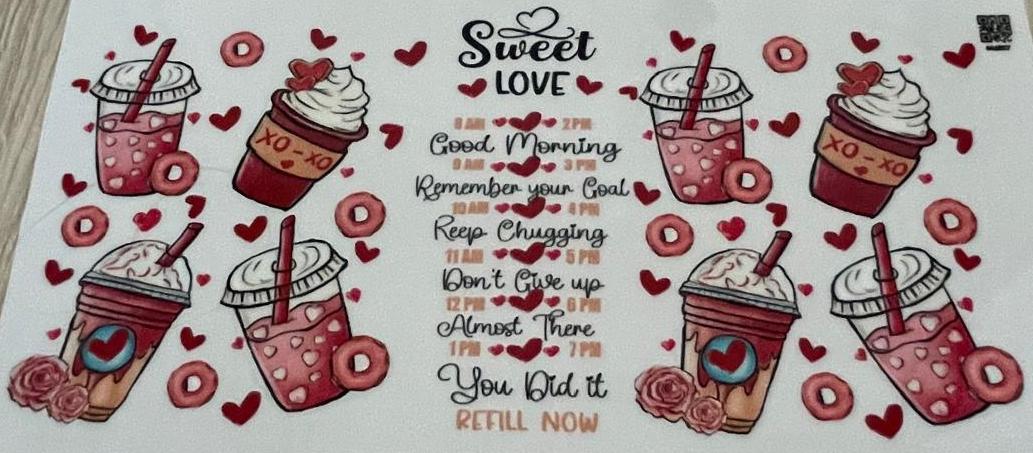 Sweet
LOVE
8 AM 2 PM
Good Morning
9 AM 3 PM
Remember your Goal
10 AM 4 PM
Keep Chugging
11 AM 5 PM
Don't Give up
12 PM 6 PM
Almost There
1 PM 7 PM
You Did it
REFILL NOW
XO-XO
XO-XO